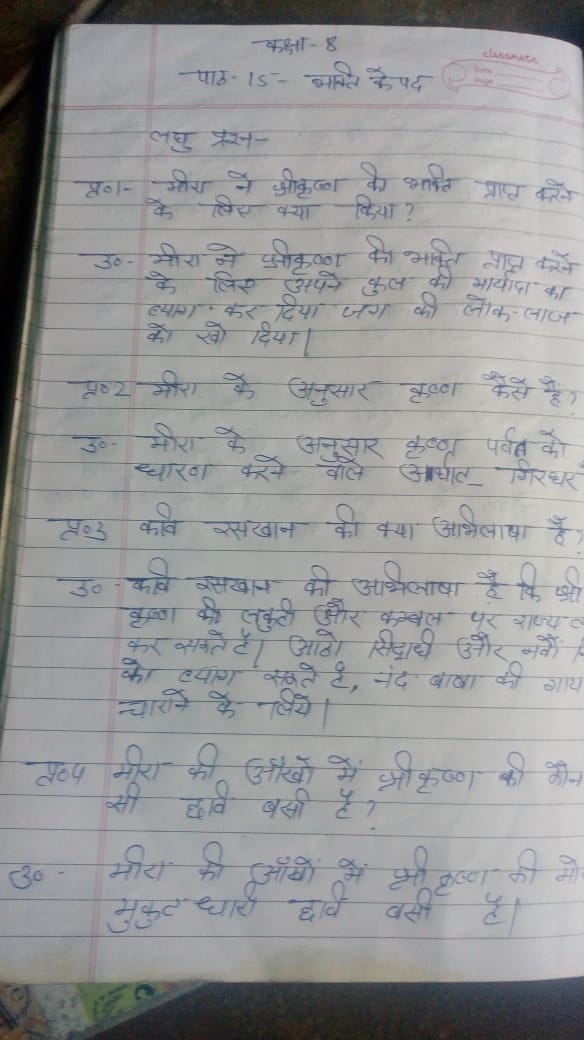 कक्षा - 8
CLASSMATE
Date
Page
पाठ-15 - भक्ति के पद
लघु प्रश्न -
प्र०1- मीरा ने श्रीकृष्ण की भक्ति प्राप्त करने
के लिए क्या किया?
उ०- मीरा ने श्रीकृष्ण की भक्ति प्राप्त करने
के लिए अपने कुल की मार्यादा का
त्याग कर दिया जग की लोक-लाज
को खो दिया।
प्र०2 मीरा के अनुसार कृष्ण कैसे हैं?
उ०- मीरा के अनुसार कृष्ण पर्वत को
धारण करने वाले अर्थात गिरधर
प्र०3 कवि रसखान की क्या अभिलाषा है?
उ०- कवि रसखान की अभिलाषा है कि श्री
कृष्ण की लकुटी और कम्बल पर राज्य
कर सकते हैं। आठो सिद्धी और नवों
को त्याग सकते है, नंद बाबा की गाय
चाराने के लिये।
प्र०4 मीरा की आँखों में श्री कृष्ण की कौन
सी छवि बसी है?
उ०- मीरा की आँखों में श्री कृष्ण की मो
मुकुट धारी छवि बसी है।